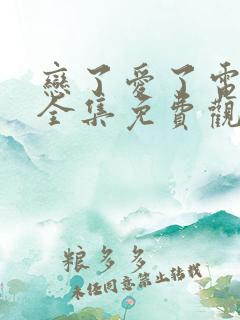 戀了愛了電
全集免費觀
粮多多
未经同意禁止转载